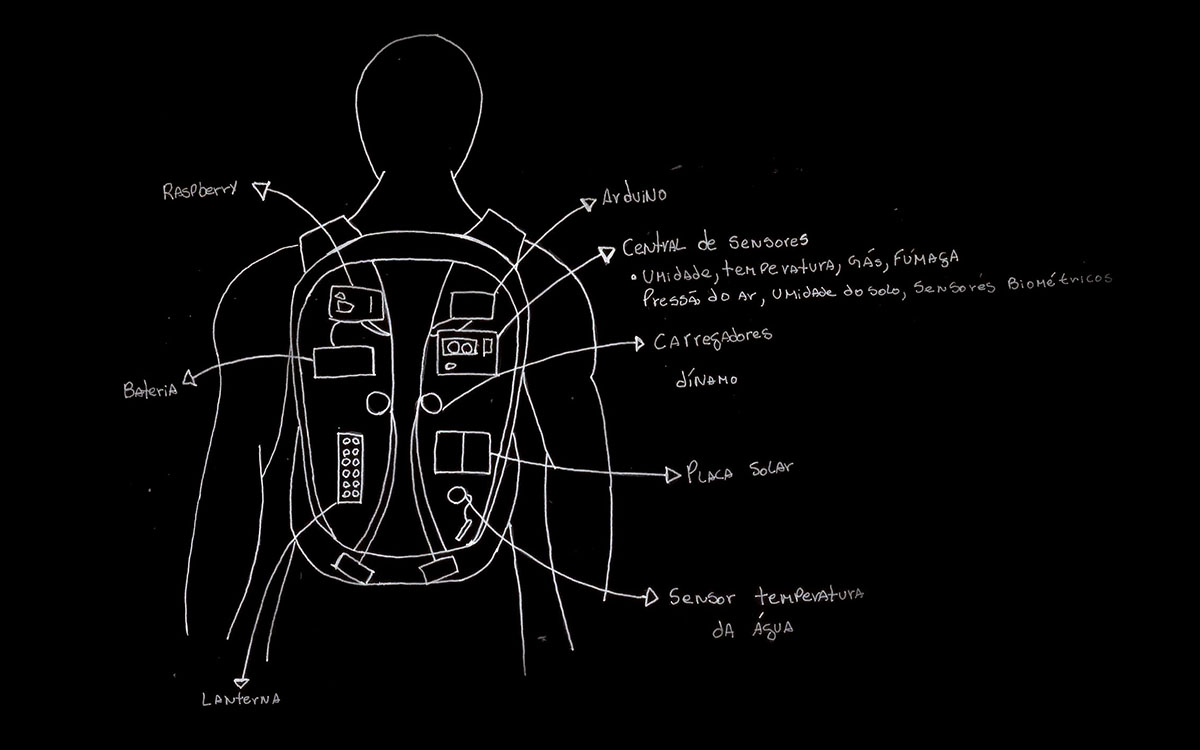 Raspberry
Arduino
Central de sensores
• Umidade, temperatura, gás, fúmaça
Pressão do ar, umidade do solo, sensores biométricos
Carregadores
dínamo
Bateria
Placa solar
Sensor temperatura
da água
Lanterna